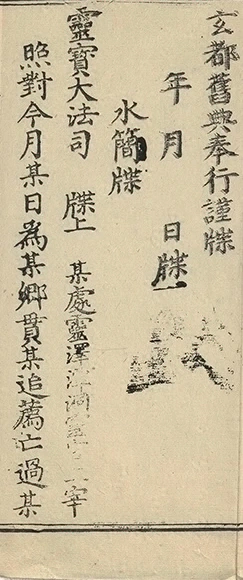 玄都舊典奉行謹牒
年 月 日牒
水簡牒
靈寶大法司 牒上 某處靈澤 洞 宰
照對今月某日為某鄉貫某追薦亡過某